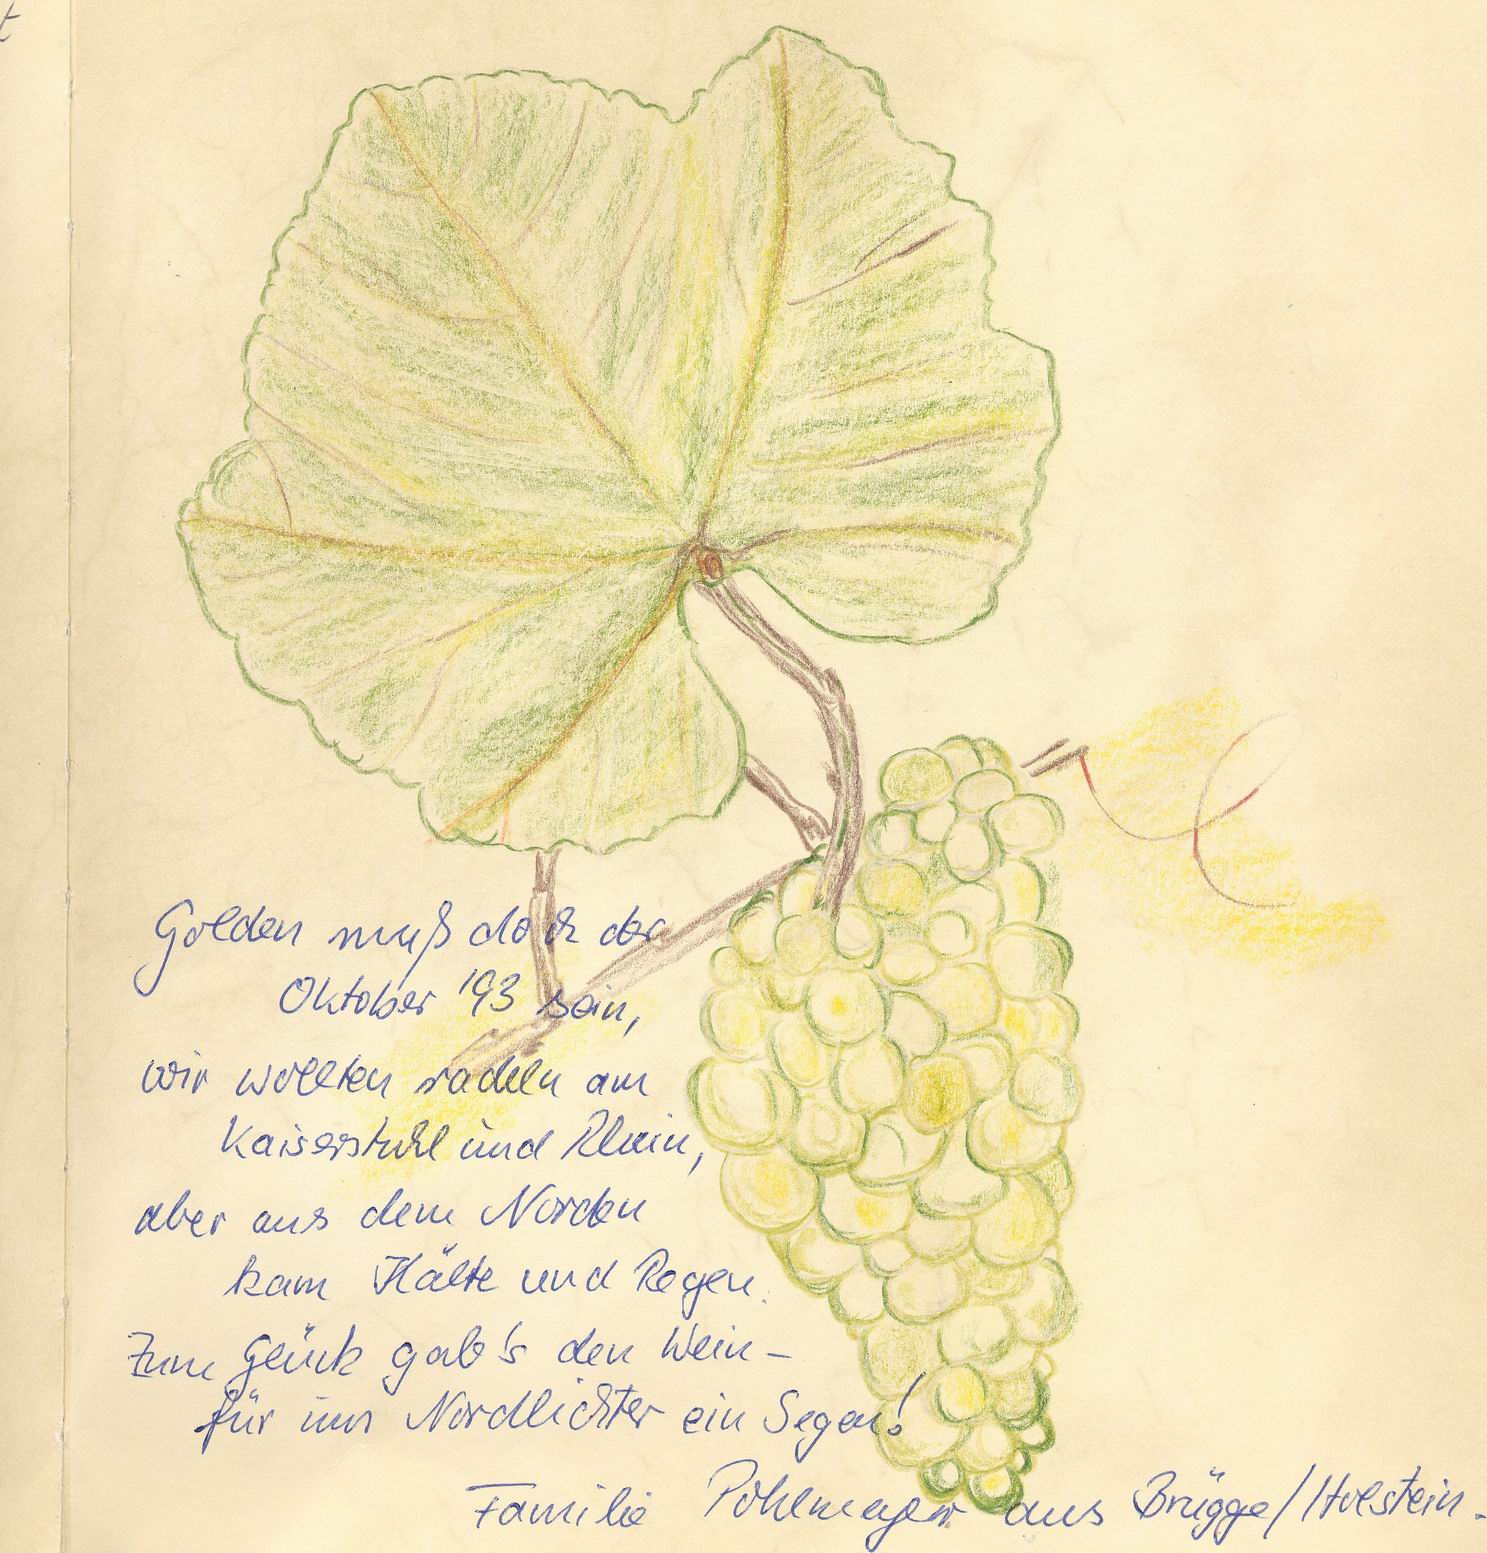 t
Golden muß doch der
Oktober '93 sein,
wir wollten radeln am
Kaiserstuhl und Rhein,
aber aus dem Norden
kam Kälte und Regen.
Zum Glück gab's den Wein –
für uns Nordlichter ein Segen!
Familie Pohlmeyer aus Brügge/Holstein.